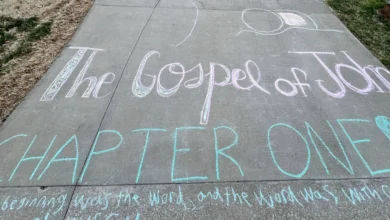 The Gospel of John
CHAPTER ONE
beginning was the Word, and the Word was with